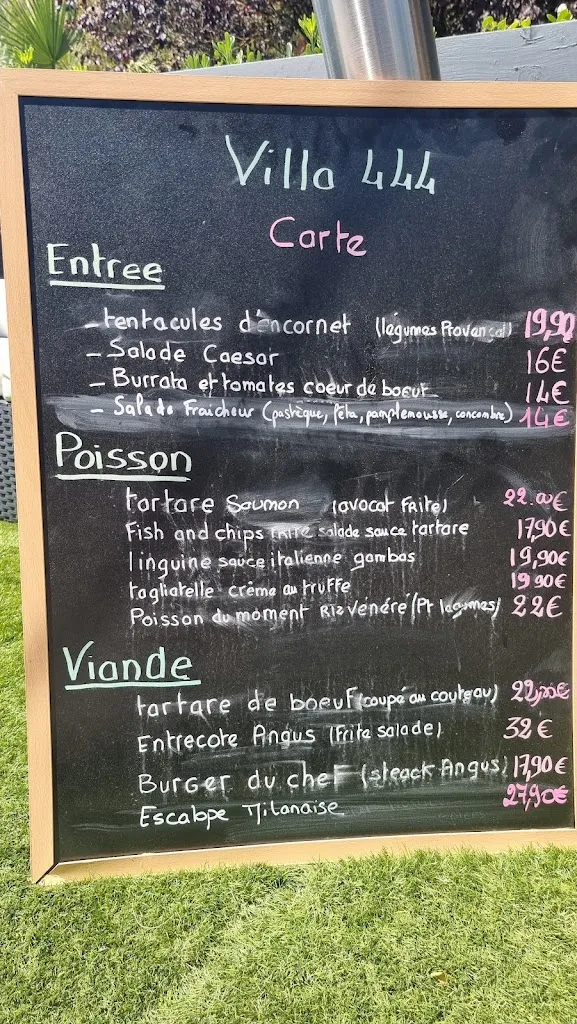 Villa 444
Carte
Entree
- tentacules d'encornet (légumes Provençal) 19,90
- Salade Caesar 16€
- Burrata et tomates coeur de boeuf 14€
- Salade Fraicheur (pastèque, féta, pamplemousse, concombre) 14€
Poisson
tartare Saumon (avocat Frite) 22.00€
Fish and chips Frite salade sauce tartare 17,90€
linguine sauce italienne gambas 19,90€
tagliatelle crème au truffe 19 90€
Poisson du moment Riz vénéré (Pt légumes) 22€
Viande
tartare de boeuf (coupé au couteau) 22,00€
Entrecote Angus (Frite salade) 32€
Burger du chef (steack Angus) 17,90€
Escalope Milanaise 27,90€